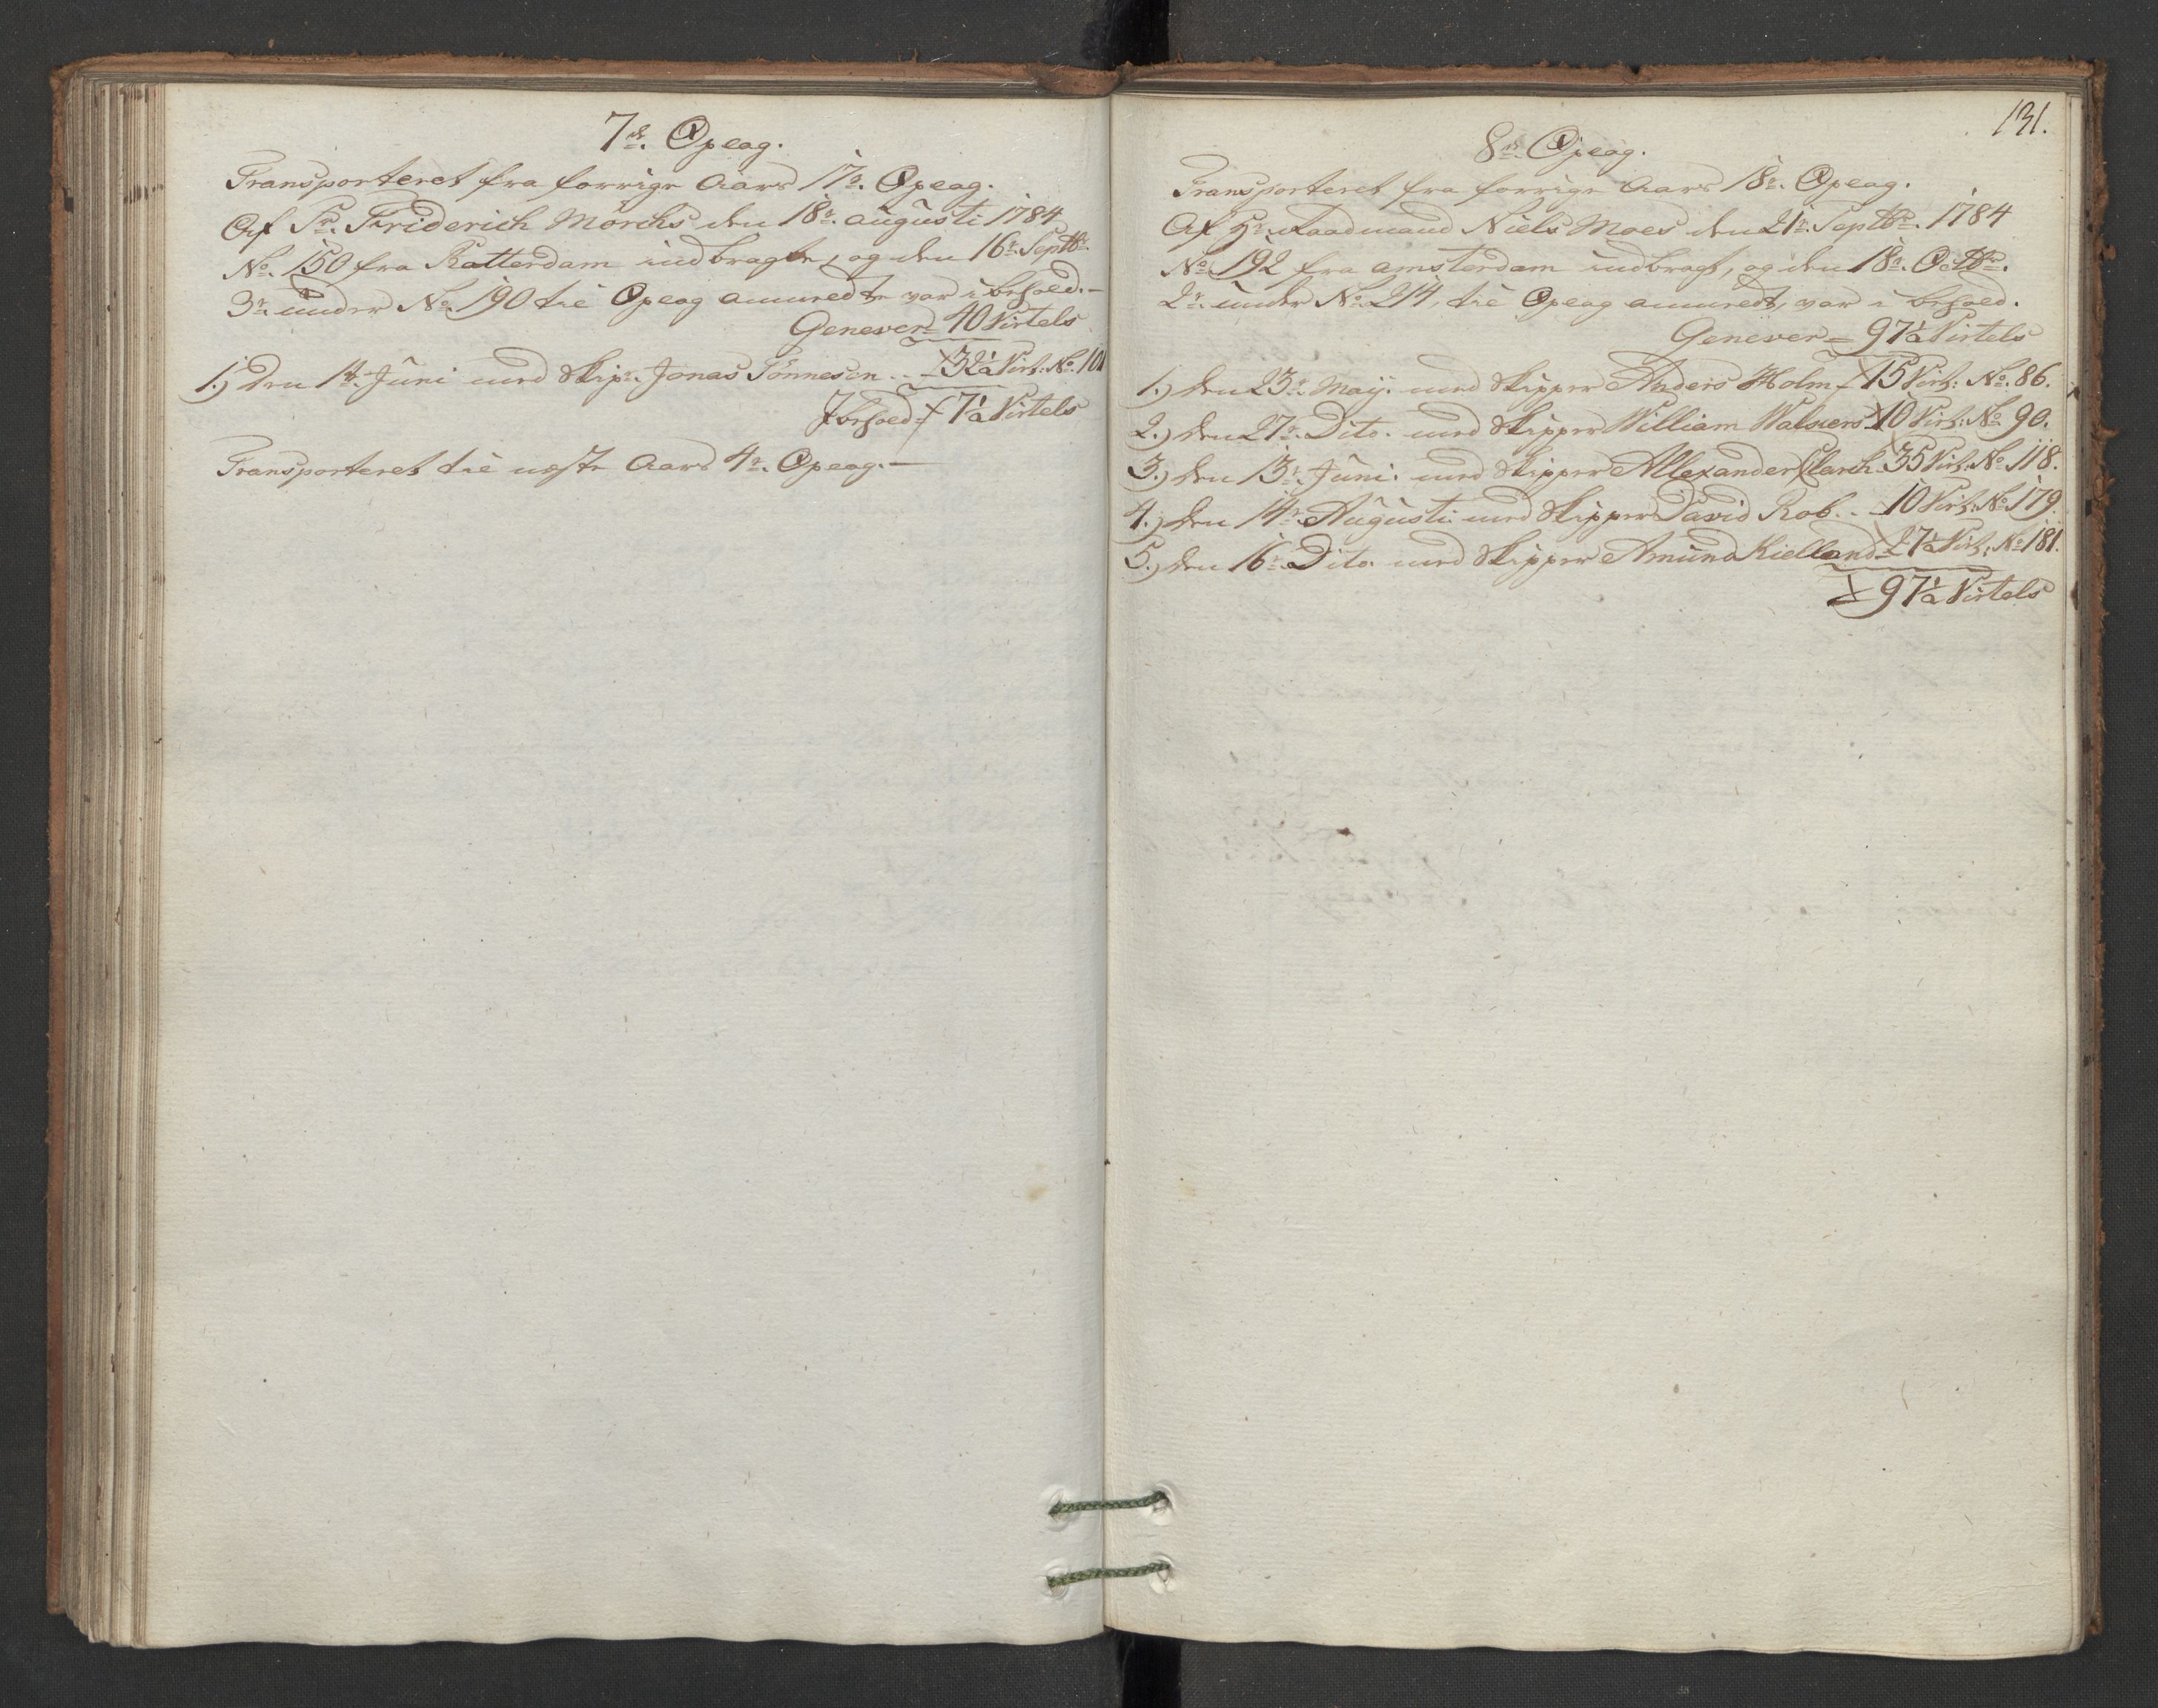 7de. Oplag.
Transporteret fra forrige Aars 17de. Oplag.
Af Sr. Friderich Mörchs den 18de. augusti 1784
No. 150 fra Rotterdam indbragte, og den 16de. Septbr.
3de. under No. 190 til Oplag anmeldte var i behold.—
Genever = 40 Virtels
1.) Den 14de. Juni med Skipr. Jonas Tönnesen - - 32½ Virt: No. 101
I behold = 7½ Virtels
Transporteret til næste Aars 4de. Oplag.—
131.
8de. Oplag.
Transporteret fra forrige Aars 18de. Oplag.
Af Hr. Raadmand Niels Moes den 21de. Septbr. 1784
No. 192 fra amsterdam indbragt, og den 18de. Octbr.
2de. under No. 214, til Oplag anmeldt, var i behold.
Genever = 97½ Virtels
1.) den 23de. Maij. med Skipper Anders Holm = 15 Virt: No. 86.
2.) den 27de. Dito. med Skipper William Walners 10 Virt: No. 90.
3.) den 13de. Juni. med Skipper Allexander Clarck. 35 Virt: No. 118.
4.) den 14de. Augusti med Skipper David Rob. - - 10 Virt: No. 179.
5.) den 16de. Dito. med Skipper Amund Kielland = 27½ Virt: No. 181.
= 97½ Virtels